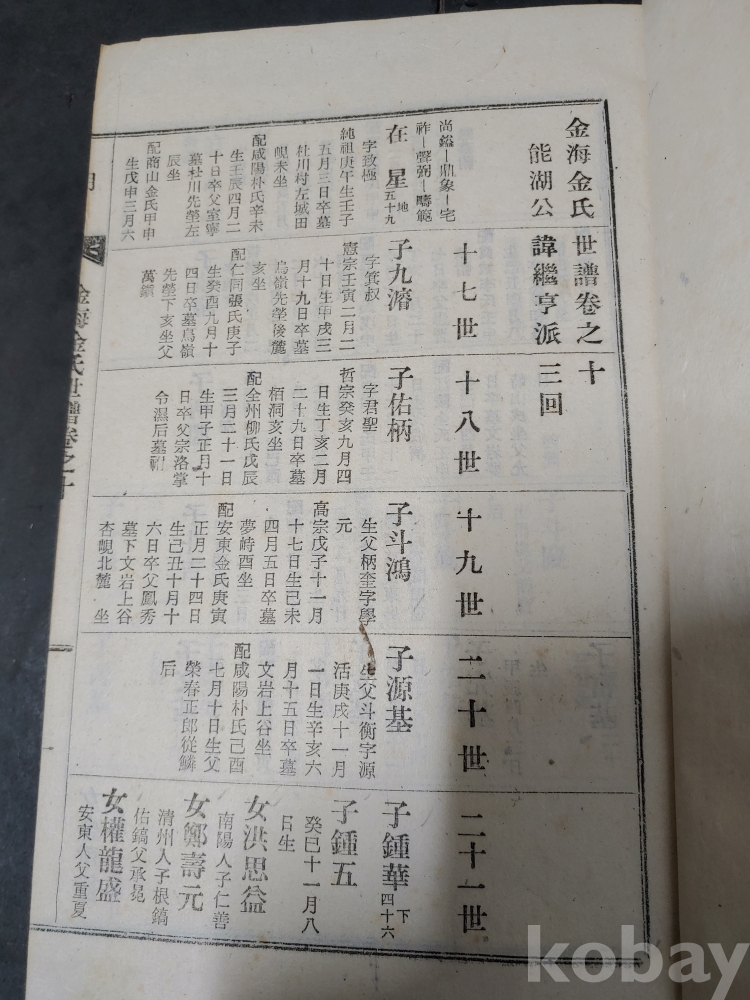 金海金氏世譜卷之十
能湖公 諱繼亨派 三回
尚鎰－鼎象－宅
祚－聲弼－疇範
在星 地五十九
字致極
純祖庚午生壬子
五月三日卒墓
杜川村左城田
峴未坐
配咸陽朴氏辛未
生壬辰四月二
十日卒父室寧
墓杜川先塋左
辰坐
配商山金氏甲申
生戊申三月六
十七世
子九濬
字箕叔
憲宗壬寅二月二
十日生甲戌三
月十九日卒墓
烏嶺先塋後麓
亥坐
配仁同張氏庚子
生癸酉九月十
四日卒墓烏嶺
先塋下亥坐父
萬鎭
十八世
子佑柄
字君聖
哲宗癸亥九月四
日生丁亥二月
二十九日卒墓
栢洞亥坐
配全州柳氏戊辰
三月二十一日
生甲子正月十
日卒父宗洛掌
令濕后墓祔
十九世
子斗鴻
生父柄奎字學
元
高宗戊子十一月
十七日生己未
四月五日卒墓
夢峙酉坐
配安東金氏庚寅
正月二十四日
生己丑十月十
六日卒父鳳秀
墓下文岩上谷
杏峴北麓 坐
二十世
子源基
生父斗衡字源
活庚戌十一月
一日生辛亥六
月十五日卒墓
文岩上谷坐
配咸陽朴氏己酉
七月十日生父
榮春正郎從鱗
后
二十一世
子鍾華 下四十六
子鍾五
癸巳十一月八
日生
女洪思益
南陽人子仁善
女鄭壽元
清州人子根鎬
佑鎬父承晃
女權龍盛
安東人父重夏
金海金氏世譜卷之十
kobay